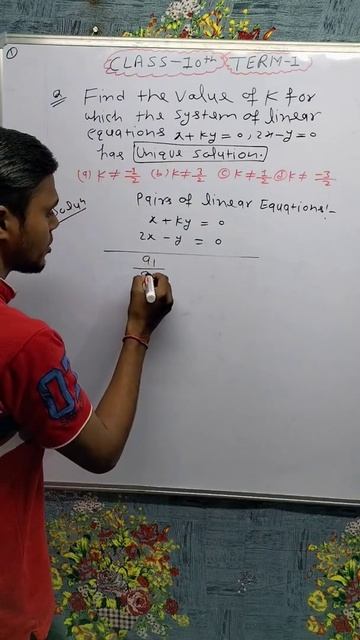 ①
CLASS-10th TERM-I
Q. Find the value of K for
which the system of linear
equations x+ky=0, 2x-y=0
has Unique solution.
(a) K ≠ -1/2 (b) K ≠ 3/2 (c) K ≠ 1/2 (d) K ≠ -3/2
Soluⁿ
Pairs of linear Equations:-
x + ky = 0
2x - y = 0
a₁